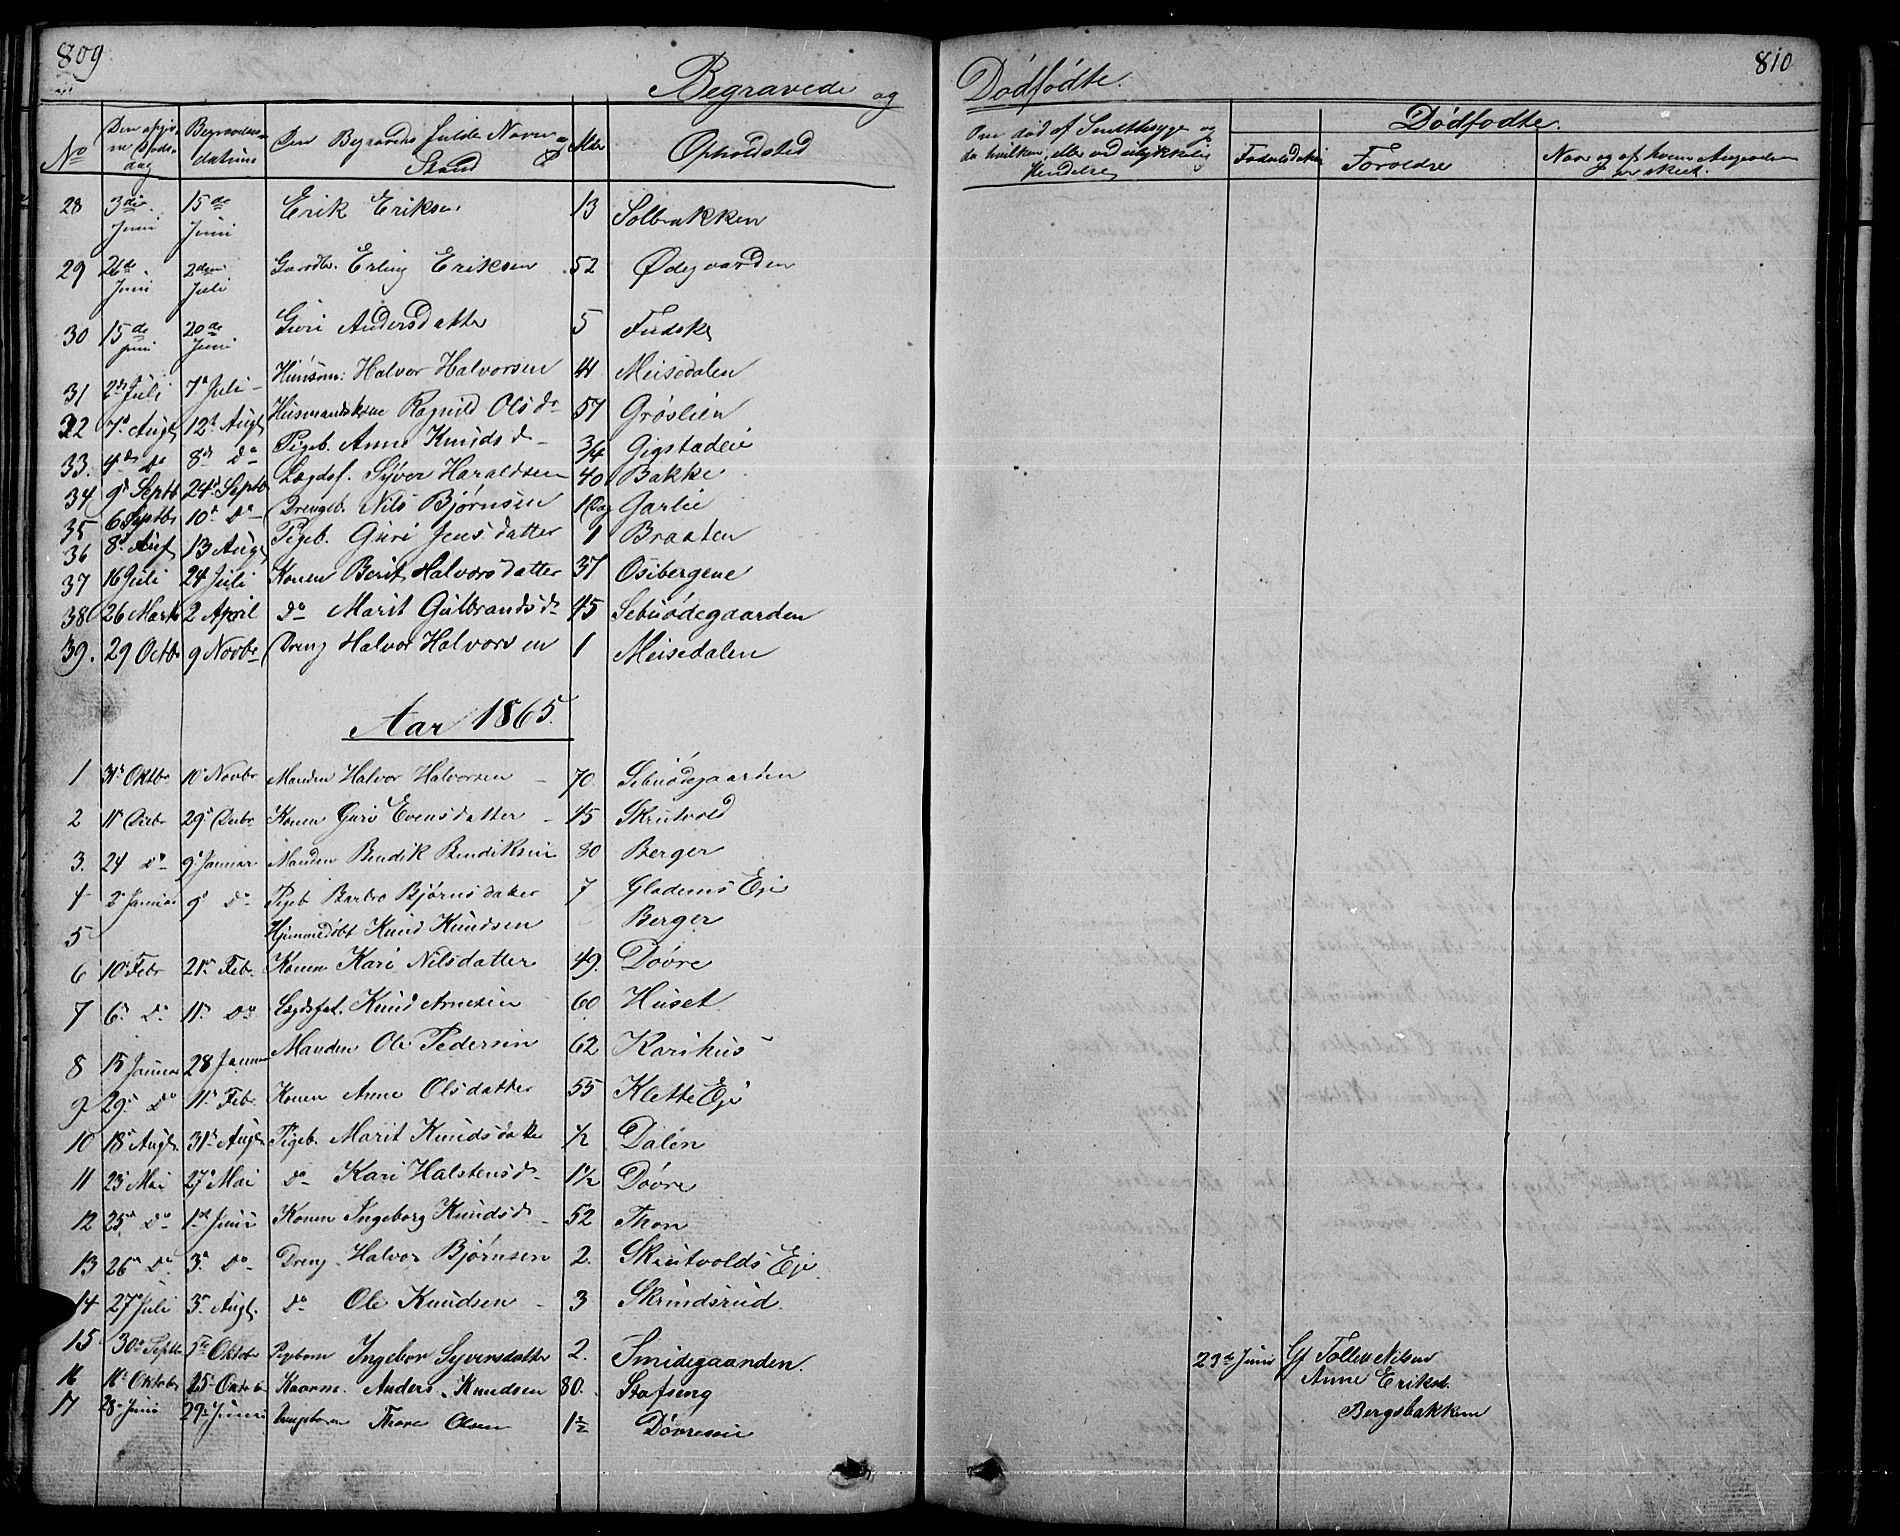 809
Begravede og
No
Den afgivne Døds dag
Begravelses datum
Den Begravedes fulde Navn og Stand
Alder
Opholdsted
28 3die Juni 15de Juni Erik Eriksen 13 Solbakken
29 26de Juni 2den Juli Gaardbr. Erling Eriksen 52 Ødegaarden
30 15de Juni 20de Juni Guri Andersdatter 5
31 2de Juli 7de Juli Halvor Halvorsen 41 Meisedalen
32 7d Augt 12t Augt Husmandskone Ragnild Olsdr 57 Grøslien
33. 4de Do 8de Do Pigeb. Anne Knudsd 3/4 Gigstadeie
34 9d Septb 24d Septb Lægdsf. Syver Haraldsen 40 Bakke
35 6 Septbr 10d Do Drengeb. Nils Bjørnsen 1 Dag Garlie
36 8d Aug 13 Augt Pigeb. Guri Jensdatter 1 Braaten
37 16 Juli 24 Juli Konen Berit Halvorsdatter 37 Osibergene
38 26 Marts 2 April do Marit Gulbrandsdr 45 Sebuødegaarden
39. 29 Octbr 9 Novbr Dreng Halvor Halvorsen 1 Meisedalen
Aar 1865.
1 31d Oktbr 10d Novbr Manden Halvor Halvorsen 70 Sebuødegaarden
2 11d Decbr 29d Decbr Konen Guri Evensdatter 45 Skrutvold
3. 24 do 9d Januar Manden Bendik Bendiksen 80 Berger
4 2d Januar 9d Do Pigeb Barbro Bjørnsdatter 7 Gladems Eje
5 Hjemmedøbt Knud Knudsen Berger
6 10d Febr 21d Febr. Konen Kari Nilsdatter 49. Døvre
7 6d Do 11d Do Lægdsf. Knud Arnesen 60 Huset
8 15 Januar 28 Januar Manden Ole Pedersen 62 Karihus
9 29d Do 11d Febr. Konen Anne Olsdatter 55 Klette Eje
10 18d Augt. 31d Augt Pigeb. Marit Knudsdatter 1/2 Dalen
11 23 Mai 27d Mai do Kari Halstensdr 1 1/2 Døvre
12 25d Do 1ste Juni Konen Ingeborg Knudsd 52 Thon
13 26d Do 3d Do Dreng Halvor Bjørnsen 2. Skrutvolds Eje
14 27d Juli 3d Augt. do Ole Knudsen 3 Skrindsrud
15 30d Septbr 5te Oktober Pigebarn Ingebor Syversdatter 2. Smidegaarden.
16 16d Oktober 25d Oktober Anders Knudsen 80. Stafseng
17 28d Juni 29d Juni Drengebarn Thore Olsen 1 Døvreeie
810
Dødfødte.
Om død af Smitthesyge og da hvilken, eller ved ulykkelig Hendelse
Dødfødte.
Fødselsdatum
Foreldre
Naar og af hvem Angivelsen er skeet.
23de Juni Gf Tollev Nilsen
Anne Eriksd.
Bergsbakken